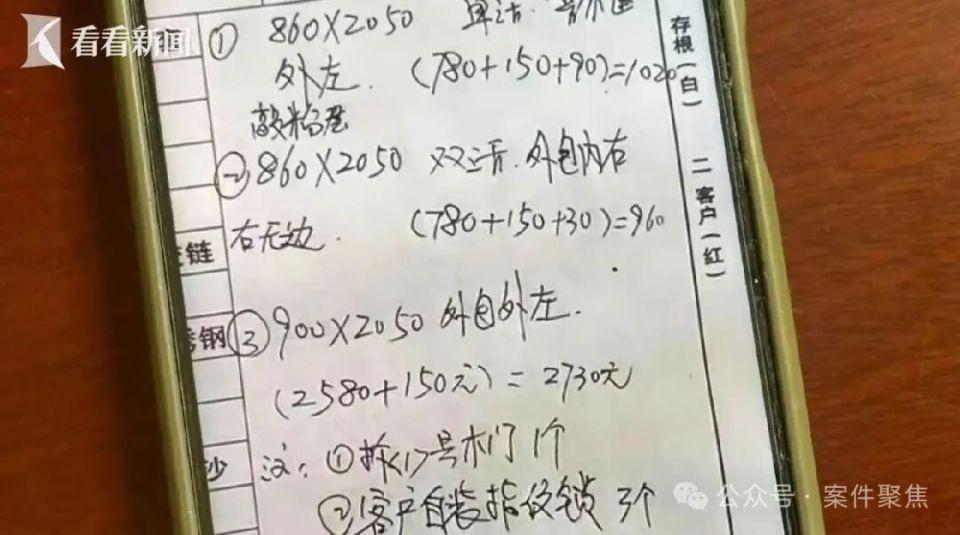 看看新闻
① 860×2050 单
外左. (780+150+90)=1020
② 860×2050 双 外包内右
右无边. (780+150+30)=960
链
③ 900×2050 外包外左.
钢
(2580+150元)=2730元
注: ①拆 号木门1个
沙
②客户自装指纹锁3个
存根(白) 二客户(红)
公众号·案件聚焦